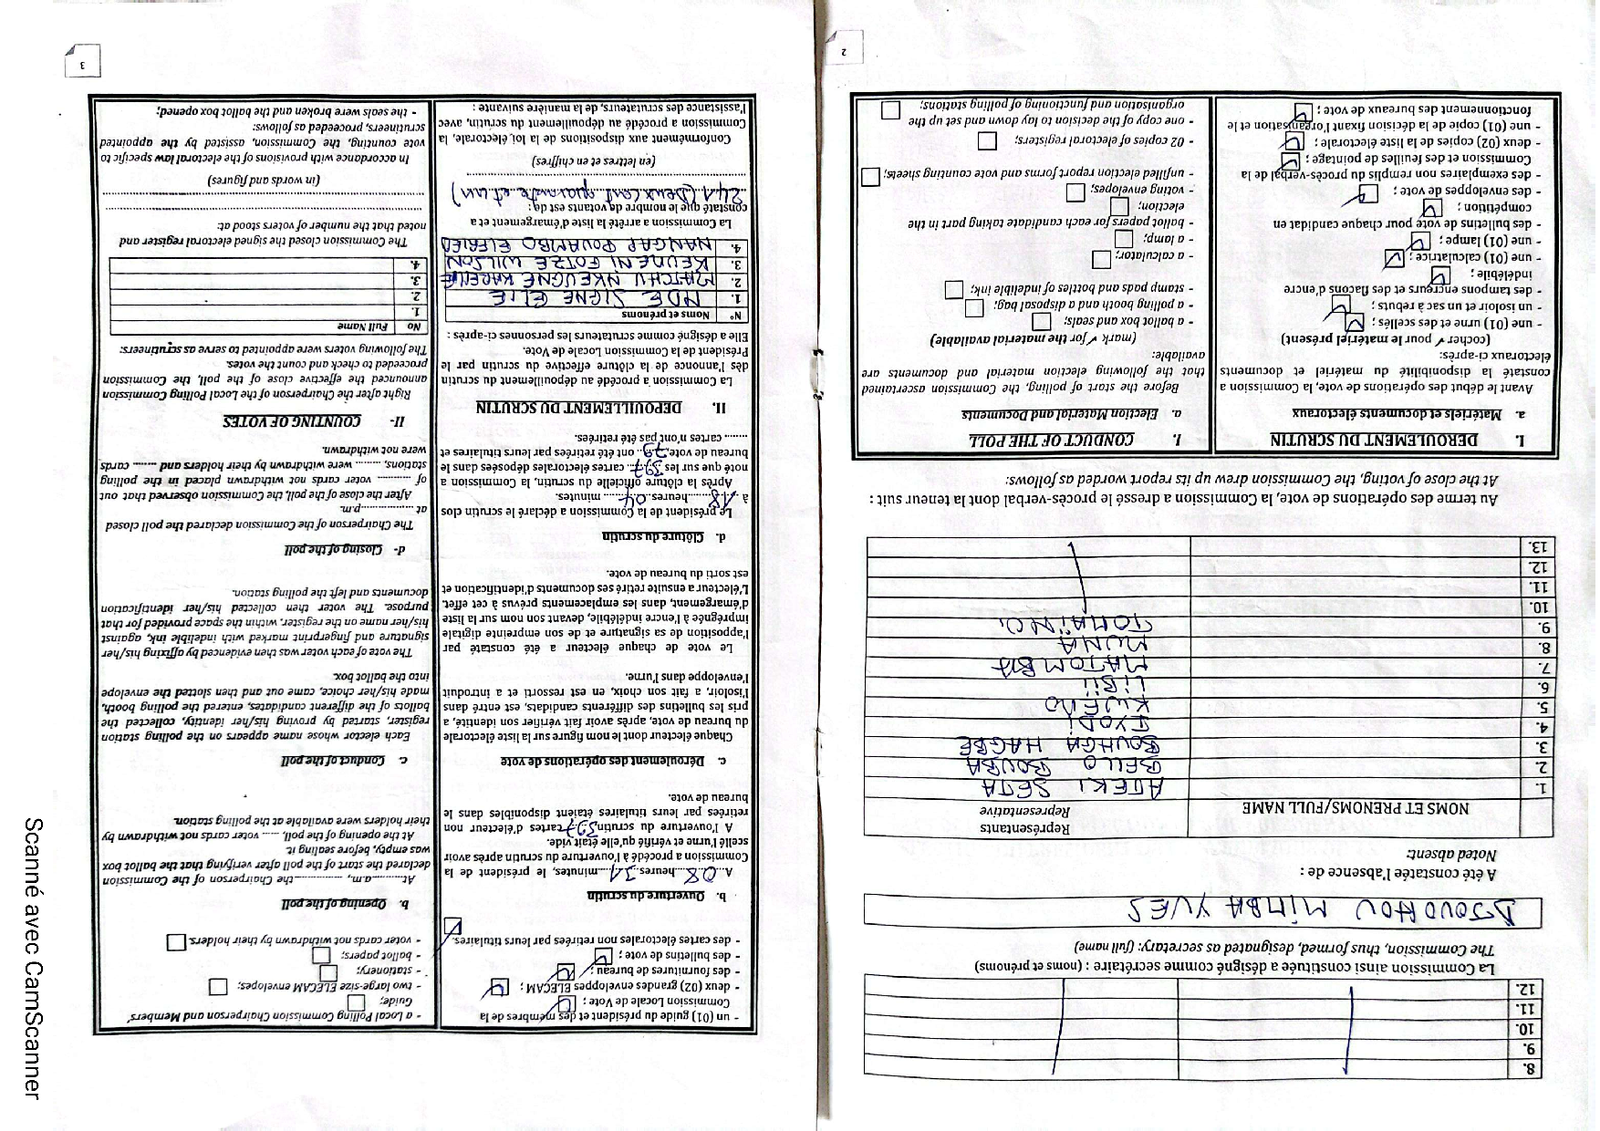 8.
9.
10.
11.
12.
La Commission ainsi constituée a désigné comme secrétaire : (noms et prénoms)
The Commission, thus formed, designated as secretary: (full name)
DJOUDHOU MIMBA YVES
A été constatée l'absence de :
Noted absent:
NOMS ET PRENOMS/FULL NAME
Représentants
Representative
1. ATEKI SETA
2. BELLO BOUBA
3. BOUHGA HAGBE
4. EYODI
5. KWEMO
6. LIBII
7. MATOMBA
8. MUNA
9. TOMAÏNO.
10.
11.
12.
13.
Au terme des opérations de vote, la Commission a dressé le procès-verbal dont la teneur suit :
At the close of voting, the Commission drew up its report worded as follows:
I. DEROULEMENT DU SCRUTIN
a. Matériels et documents électoraux
Avant le début des opérations de vote, la Commission a
constaté la disponibilité du matériel et documents
électoraux ci-après:
(cocher ✓ pour le matériel présent)
- une (01) urne et des scellés ;
- un isoloir et un sac à rebuts ;
- des tampons encreurs et des flacons d'encre
indélébile ;
- une (01) calculatrice ;
- une (01) lampe ;
- des bulletins de vote pour chaque candidat en
compétition ;
- des enveloppes de vote ;
- des exemplaires non remplis du procès-verbal de la
Commission et des feuilles de pointage ;
- deux (02) copies de la liste électorale ;
- une (01) copie de la décision fixant l'organisation et le
fonctionnement des bureaux de vote ;
I. CONDUCT OF THE POLL
a. Election Material and Documents
Before the start of polling, the Commission ascertained
that the following election material and documents are
available:
(mark ✓ for the material available)
- a ballot box and seals;
- a polling booth and a disposal bag;
- stamp pads and bottles of indelible ink;
- a calculator;
- a lamp;
- ballot papers for each candidate taking part in the
election;
- voting envelopes;
- unfilled election report forms and vote counting sheets;
- 02 copies of electoral registers;
- one copy of the decision to lay down and set up the
organisation and functioning of polling stations;
2
- un (01) guide du président et des membres de la
Commission Locale de Vote ;
- deux (02) grandes enveloppes ELECAM ;
- des fournitures de bureau ;
- des bulletins de vote ;
- des cartes électorales non retirées par leurs titulaires.
b. Ouverture du scrutin
A...08...heures...31...minutes, le président de la
Commission a procédé à l'ouverture du scrutin après avoir
scellé l'urne et vérifié qu'elle était vide.
A l'ouverture du scrutin, 397 cartes d'électeur non
retirées par leurs titulaires étaient disponibles dans le
bureau de vote.
c. Déroulement des opérations de vote
Chaque électeur dont le nom figure sur la liste électorale
du bureau de vote, après avoir fait vérifier son identité, a
pris les bulletins des différents candidats, est entré dans
l'isoloir, a fait son choix, en est ressorti et a introduit
l'enveloppe dans l'urne.
Le vote de chaque électeur a été constaté par
l'apposition de sa signature et de son empreinte digitale
imprégnée à l'encre indélébile, devant son nom sur la liste
d'émargement, dans les emplacements prévus à cet effet.
L'électeur a ensuite retiré ses documents d'identification et
est sorti du bureau de vote.
d. Clôture du scrutin
Le président de la Commission a déclaré le scrutin clos
à...18...heures...04...minutes.
Après la clôture officielle du scrutin, la Commission a
noté que sur les 397 cartes électorales déposées dans le
bureau de vote, 79 ont été retirées par leurs titulaires et
....... cartes n'ont pas été retirées.
II. DEPOUILLEMENT DU SCRUTIN
La Commission a procédé au dépouillement du scrutin
dès l'annonce de la clôture effective du scrutin par le
Président de la Commission Locale de Vote.
Elle a désigné comme scrutateurs les personnes ci-après :
N° Noms et prénoms
1. MDE SIGNE ELIE
2. MATCHU NKEUGNE KARELLE
3. KEUMENI FOTZE WILSON
4. NANGAP POUAMBO ELFRIED
La Commission a arrêté la liste d'émargement et a
constaté que le nombre de votants est de :
241 (Deux cent quarante et un)
(en lettres et en chiffres)
Conformément aux dispositions de la loi électorale, la
Commission a procédé au dépouillement du scrutin, avec
l'assistance des scrutateurs, de la manière suivante :
- a Local Polling Commission Chairperson and Members'
Guide;
- two large-size ELECAM envelopes;
- stationery;
- ballot papers;
- voter cards not withdrawn by their holders.
b. Opening of the poll
At............a.m., ............the Chairperson of the Commission
declared the start of the poll after verifying that the ballot box
was empty, before sealing it.
At the opening of the poll, ...... voter cards not withdrawn by
their holders were available at the polling station.
c. Conduct of the poll
Each elector whose name appears on the polling station
register, started by proving his/her identity, collected the
ballots of the different candidates, entered the polling booth,
made his/her choice, came out and then slotted the envelope
into the ballot box.
The vote of each voter was then evidenced by affixing his/her
signature and fingerprint marked with indelible ink, against
his/her name on the register, within the space provided for that
purpose. The voter then collected his/her identification
documents and left the polling station.
d- Closing of the poll
The Chairperson of the Commission declared the poll closed
at ..................p.m.
After the close of the poll, the Commission observed that out
of .......... voter cards not withdrawn placed in the polling
stations, ........ were withdrawn by their holders and ....... cards
were not withdrawn.
II- COUNTING OF VOTES
Right after the Chairperson of the Local Polling Commission
announced the effective close of the poll, the Commission
proceeded to check and count the votes.
The following voters were appointed to serve as scrutineers:
No Full Name
1.
2.
3.
4.
The Commission closed the signed electoral register and
noted that the number of voters stood at:
(in words and figures)
In accordance with provisions of the electoral law specific to
vote counting, the Commission, assisted by the appointed
scrutineers, proceeded as follows:
- the seals were broken and the ballot box opened;
3
Scanné avec CamScanner